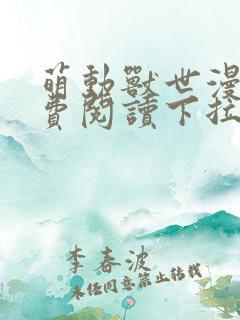 萌動獸世漫
費閱讀下拉
李春波
未經同意禁止轉載